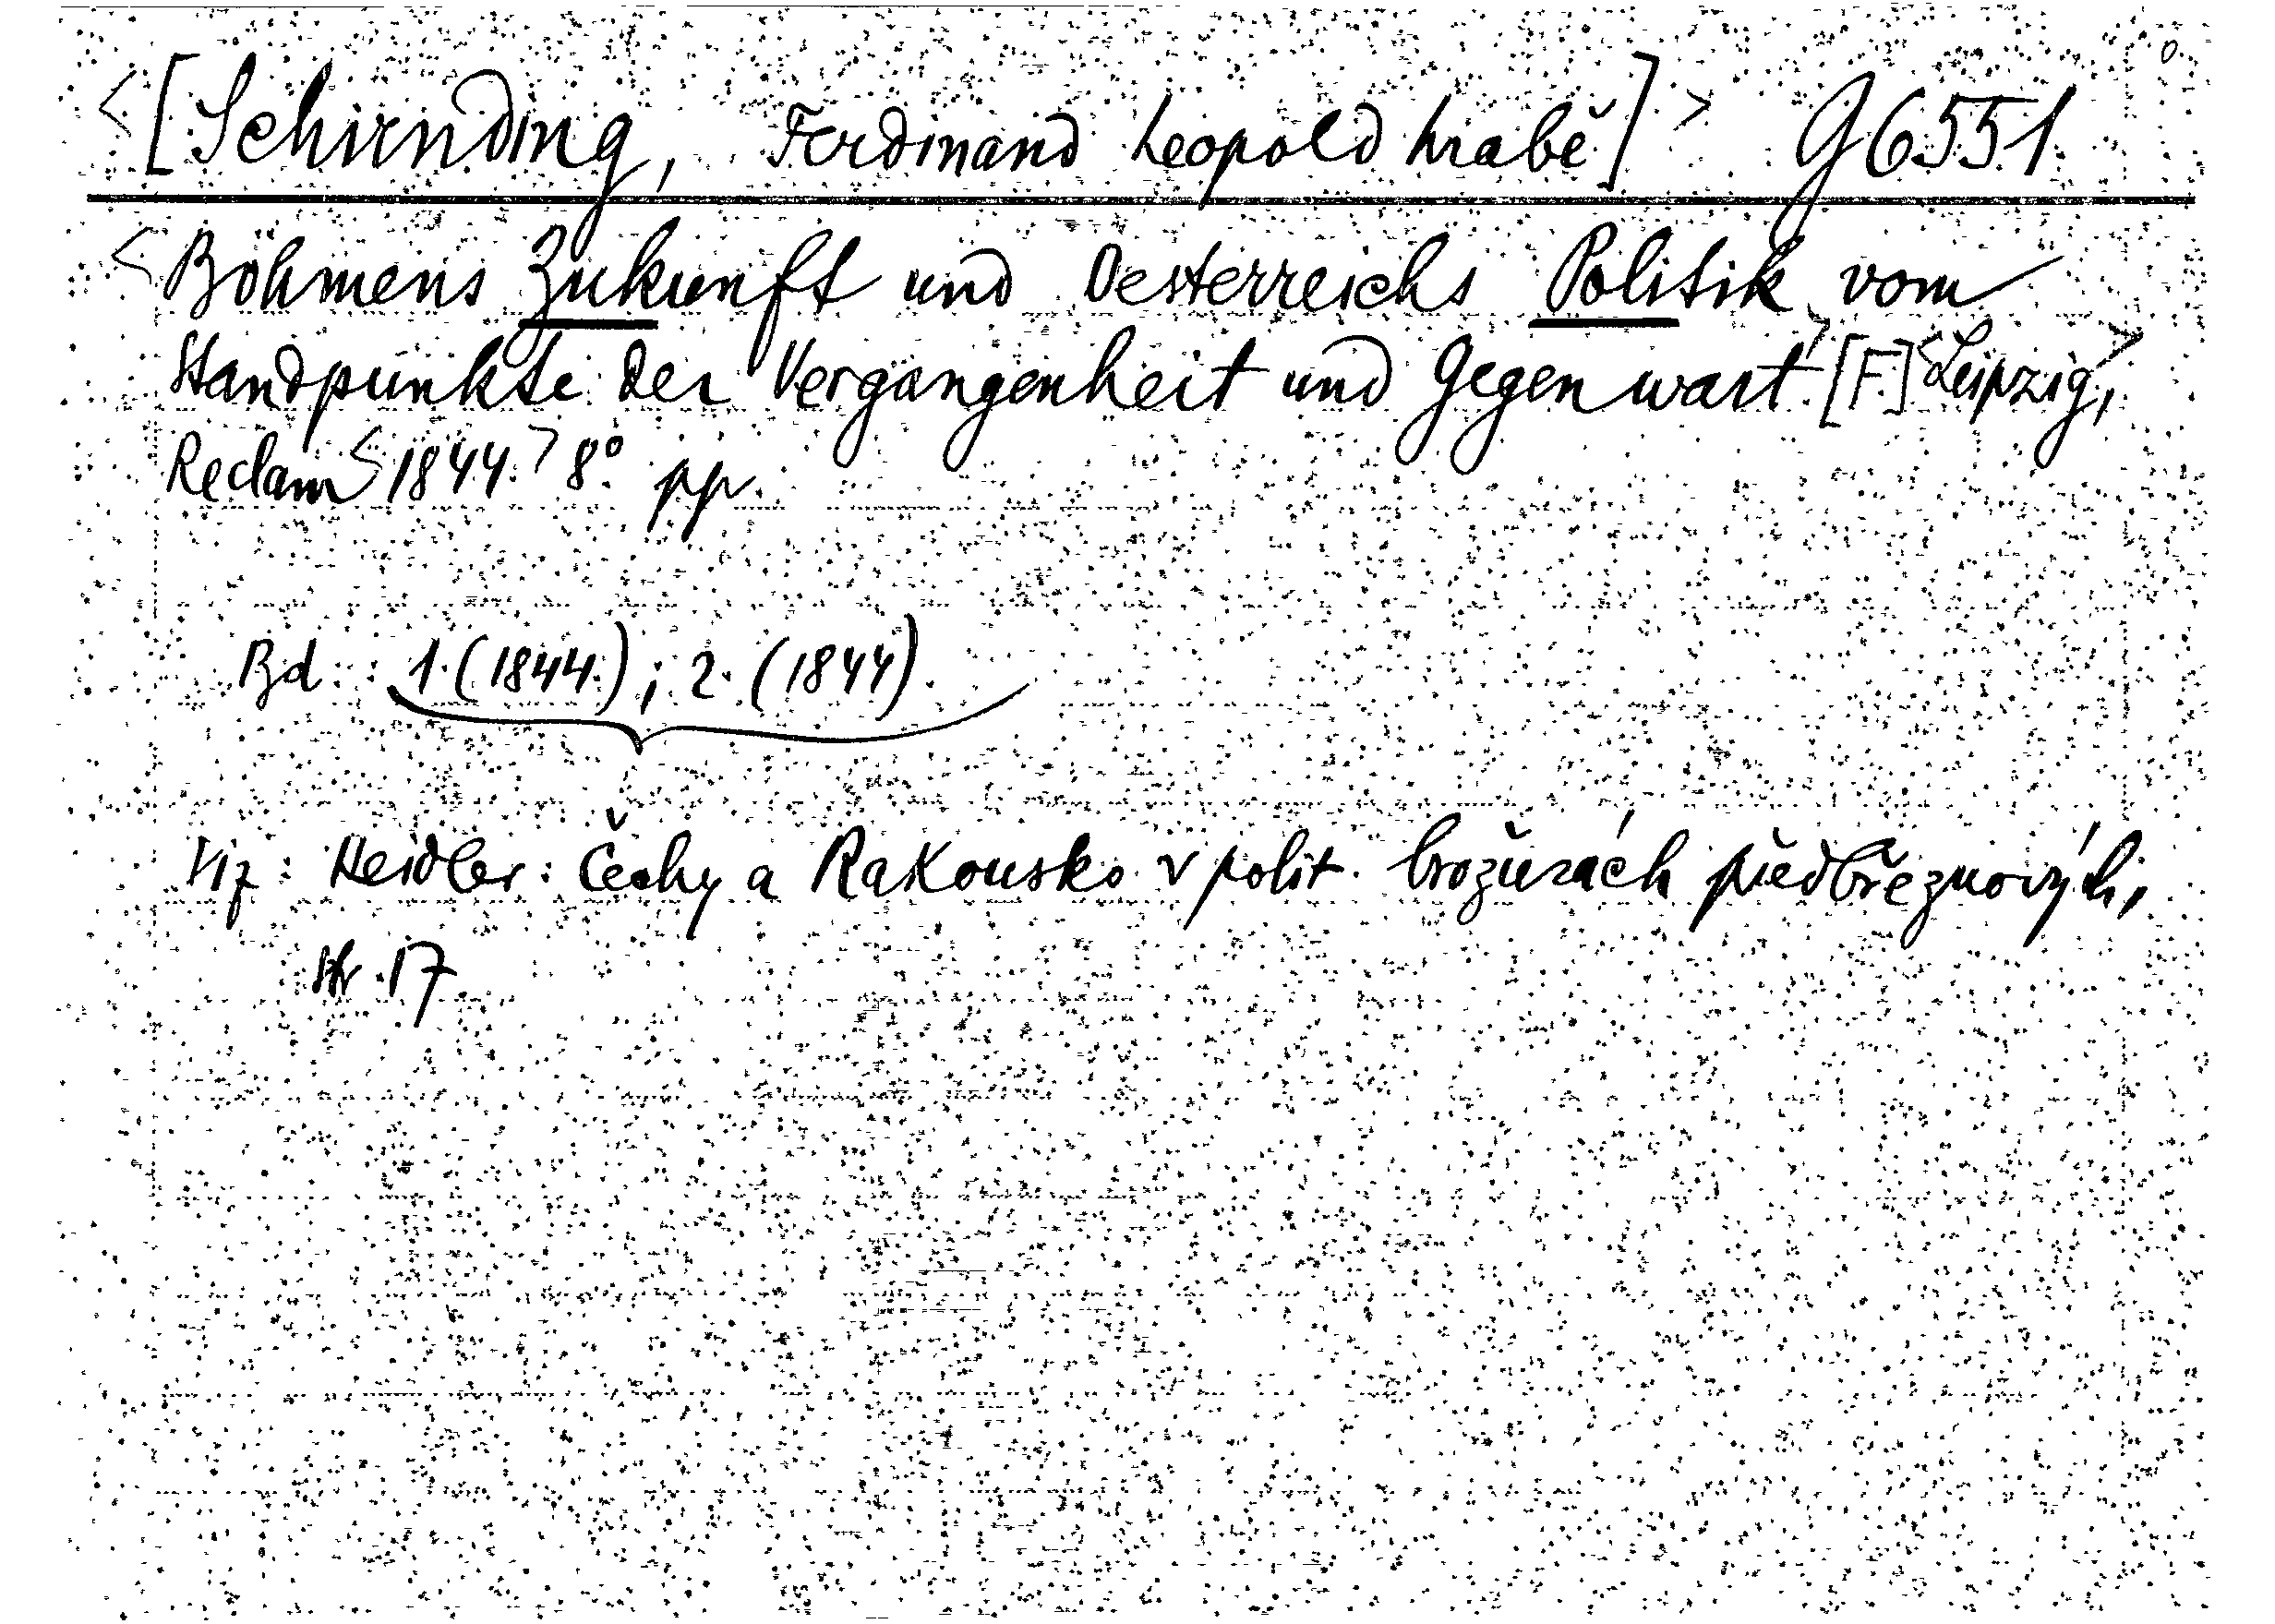 <[Schirnding, Ferdinand Leopold hrabě]> G 6551
<Böhmens Zukunft und Oesterreichs Politik vom
Standpunkte der Vergangenheit und Gegenwart.> [F.] <Leipzig,>
Reclam <1844.> 8° pp.
Bd. : 1. (1844.) ; 2. (1844).
Viz : Heidler : Čechy a Rakousko v polit. brožurách předbřeznových,
str. 17